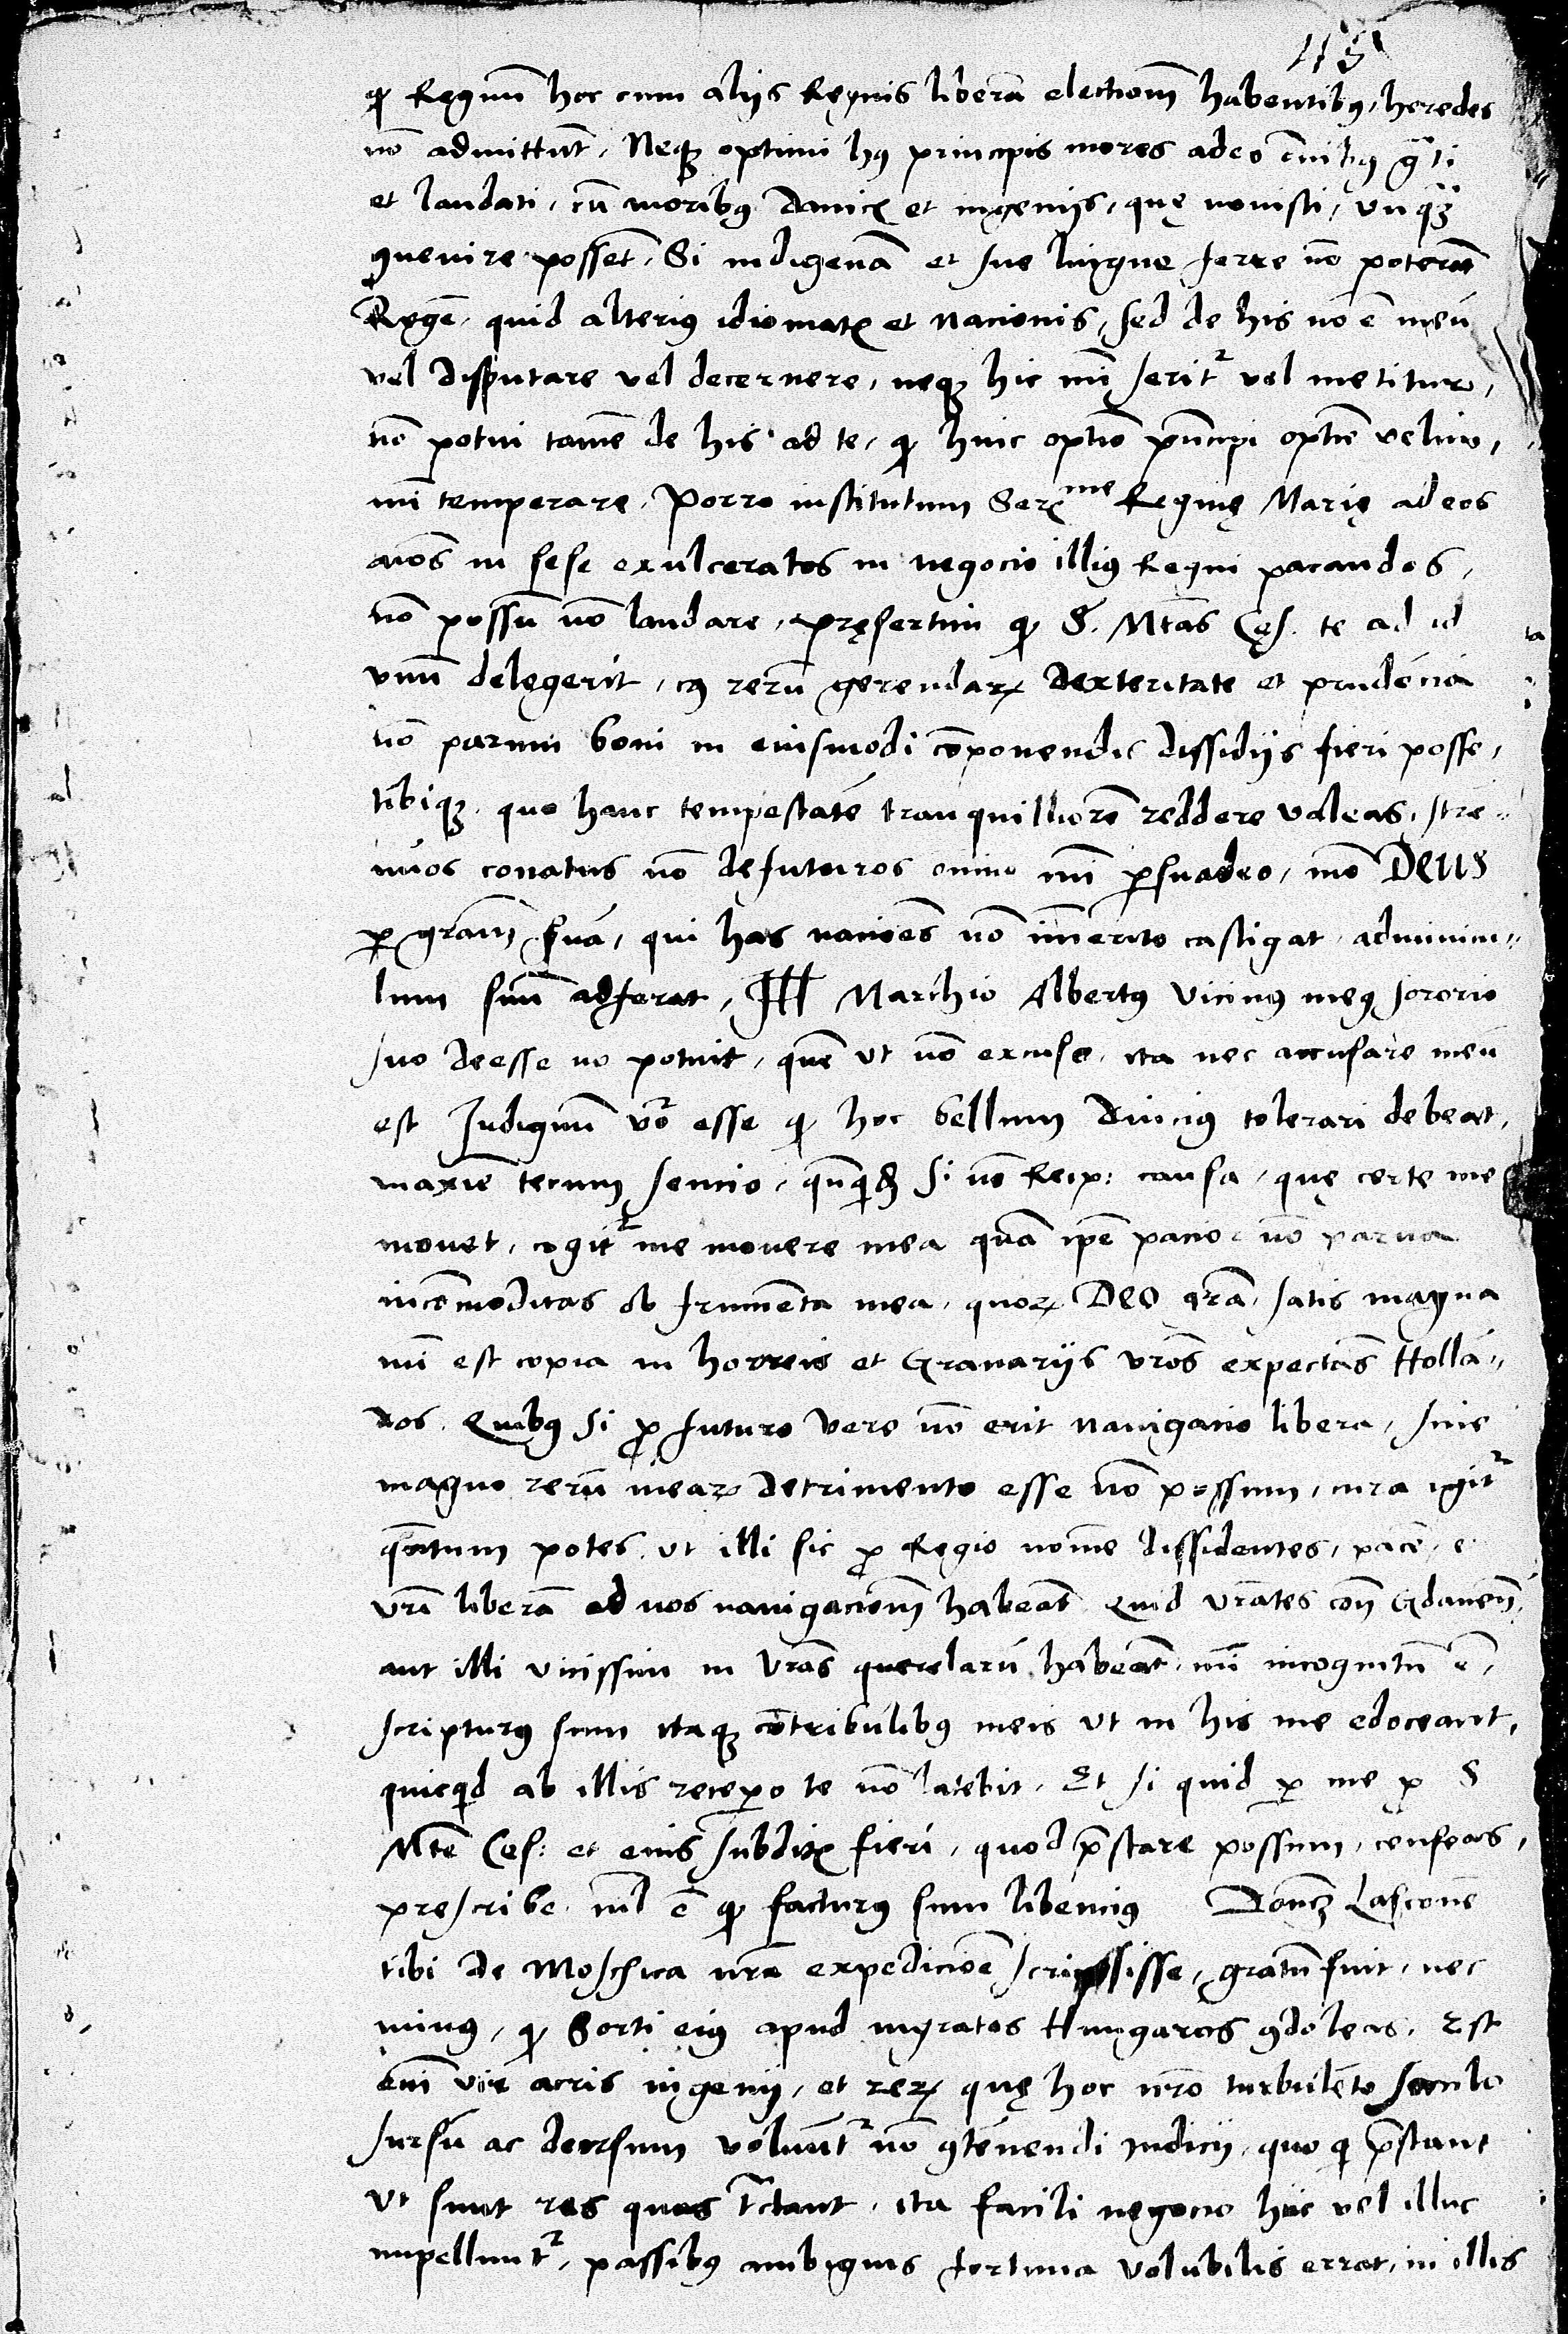 115
ꝙ Regnum̄ hoc cum alijs Regnis liberā electionem̄ habentibꝯ, heredes
nō admittunt̄, Neqꝫ optimi hꝯ principis mores adeo om̄nibꝯ gra͞ti
et laudati, cū moribꝯ Danicꝭ et ingenijs, quę novisti, vnqꝫ
ꝯuenire possent̄, Si indigenā et sue lingue ferre nō poterunt̄
Regē, quid alteriꝯ idiomatꝭ et nacionis, sed de his nō ē meū
vel disputare vel decernere, neqꝫ hic mi͞ serit᷑ vel metitur,
nō potui tamē de his ad te, ꝙ huic optīo prīncipi optīe velim,
mi͞ temperare, Porro institutum Serᵐᵉ Reginę Marię ad eos
aīos in sese exulceratos in negocio illiꝯ Regni pacandos,
nō possū nō laudare, pręsertim ꝙ S. Mtas̄ Cęs. te ad id
vnū delegerit, cꝯ rerū gerendaꝝ dexteritate et prudēciā
nō parum boni in eiusmodi cōponendis dissidijs fieri posse,
tibiqꝫ, quo hanc tempestatē tranquilliorē reddere valeas, stre-
nuos conatus nō defuturos omīno mi͞ ꝑsuadeo, mō DEUS
ꝑ gratiam̄ suā, qui has nacioēs nō im̄erito castigat, adminicu-
lum suū adferat, Ill Marchio Albertꝯ vicinꝯ meꝯ sororio
suo deesse nō potuit, quē vt nō excuso, ita nec accusare meū
est Indignum̄ vō esse ꝙ hoc bellum diuciꝯ tolerari debeat,
maxīe tecum sencio, qn̄qdē si nō Reip: causa, quę certe me
mouet, cogit᷑ me mouere mea quā ip̄e pacior nō parua
incōmoditas ob frumēta mea, quoꝝ DEO gr̄a, satis magna
mi͞ est copia in horreis et Granarijs vr̄os expectās Hollā-
dos. Quibꝯ si ꝓ futuro vere nō erit nauigatio libera, sine
magno rerū meaꝝ detrimento esse nō possum, cura igit᷑
qn̄tum potes, vt illi sic ꝓ Regio nomīe dissidentes, pacē, e
vr̄i liberā ad nos nauigacionem̄ habeāt Quid vr̄ates con̄ Gdanen̄,
aut illi vicissim in vr̄as querelarū habeāt, mi͞ incognitū ē,
scripturꝯ sum itaqꝫ cōtribulibꝯ meis vt in his me edoceant,
quicqd ab illis recepero te nō latebit, Et si quid ꝑ me ꝓ S
Mte͞ Ces: et eius subditꝭ fieri, quod p̄stare possum, censeas,
pręscribe, nil̄ ē ꝙ facturꝯ sum libenciꝯ Don̄ꝫ Lasconē
tibi de Moschica nr̄a expedicioē scripsisse, gratū fuit, nec
minꝯ, ꝙ Sorti eiꝯ apud ingratos Hungaros ꝯdoleas. Est
enī vir acris ingenij, et reꝝ quę hoc nr̄o turbulēto seculo
sursū ac deorsum voluūt᷑ nō ꝯtēnendi iudicij, quo q p̄stant
vt sunt res quas tr̄actant, ita facili negocio hūc vel illuc
impelluntᷣ, passibꝯ ambiguis fortuna volubilis errat, in illis